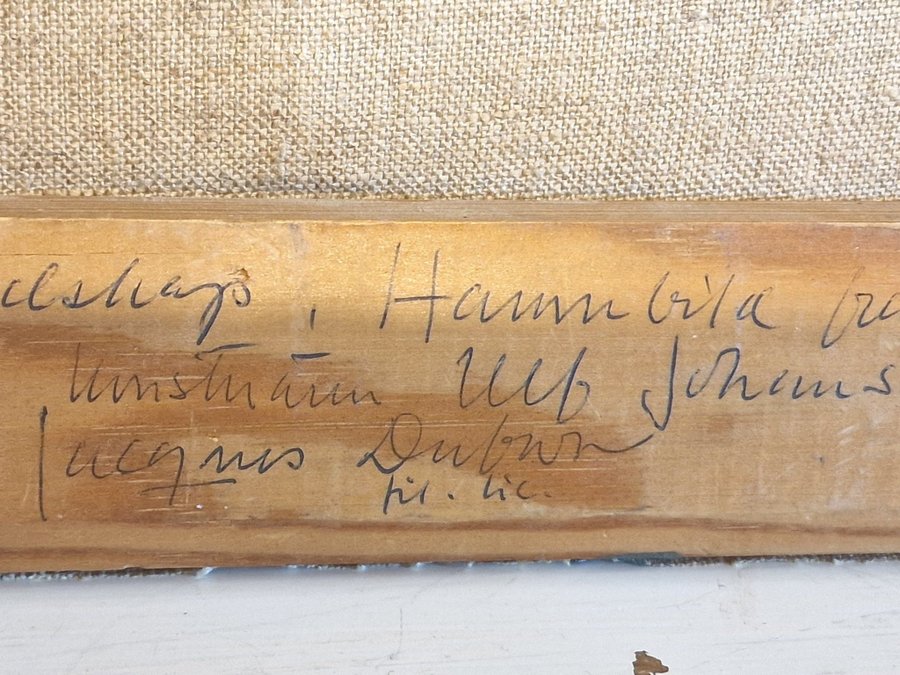 dskap, Hammbila fra
konstnären Ulf Johans
Jacques Dubson
fil. lic.